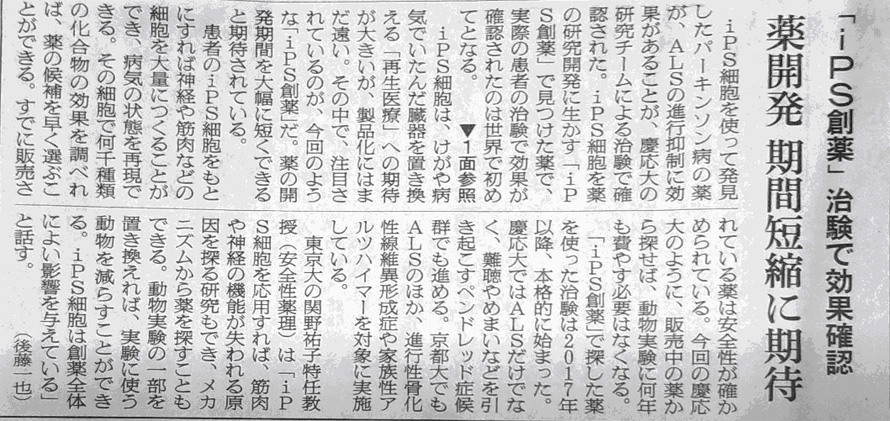 「iPS創薬」治験で効果確認
薬開発 期間短縮に期待
iPS細胞を使って発見
したパーキンソン病の薬
が、ALSの進行抑制に効
果があることが、慶応大の
研究チームによる治験で確
認された。iPS細胞を薬
の研究開発に生かす「iP
S創薬」で見つけた薬で、
実際の患者の治験で効果が
確認されたのは世界で初め
てとなる。 ▼1面参照
iPS細胞は、けがや病
気でいたんだ臓器を置き換
える「再生医療」への期待
が大きいが、製品化にはま
だ遠い。その中で、注目さ
れているのが、今回のよう
な「iPS創薬」だ。薬の開
発期間を大幅に短くできる
と期待されている。
患者のiPS細胞をもと
にすれば神経や筋肉などの
細胞を大量につくることが
でき、病気の状態を再現で
きる。その細胞で何千種類
の化合物の効果を調べれ
ば、薬の候補を早く選ぶこ
とができる。すでに販売さ
れている薬は安全性が確か
められている。今回の慶応
大のように、販売中の薬か
ら探せば、動物実験に何年
も費やす必要はなくなる。
「iPS創薬」で探した薬
を使った治験は2017年
以降、本格的に始まった。
慶応大ではALSだけでな
く、難聴やめまいなどを引
き起こすペンドレッド症候
群でも進める。京都大でも
ALSのほか、進行性骨化
性線維異形成症や家族性ア
ルツハイマーを対象に実施
している。
東京大の関野祐子特任教
授（安全性薬理）は「iP
S細胞を応用すれば、筋肉
や神経の機能が失われる原
因を探る研究もでき、メカ
ニズムから薬を探すことも
できる。動物実験の一部を
置き換えれば、実験に使う
動物を減らすことができ
る。iPS細胞は創薬全体
によい影響を与えている」
と話す。 （後藤一也）